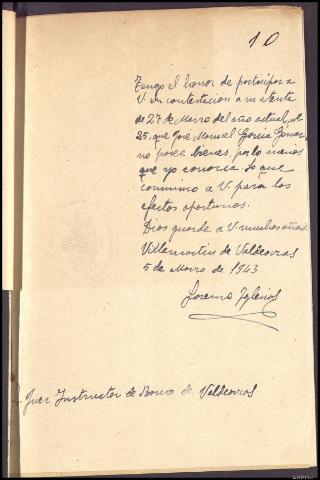 10
Tengo el honor de participar a
V. en contestacion a su atenta
de 27 de Marzo del año actual, nº
25, que José Manuel García Gómez
no posee bienes, por lo menos
que yo conozca. Lo que
comunico a V. para los
efectos oportunos.
Dios guarde a V. muchos años.
Villamartin de Valdeorras
5 de Marzo de 1943
Iglesias
Juez Instructor de Barco de Valdeorras